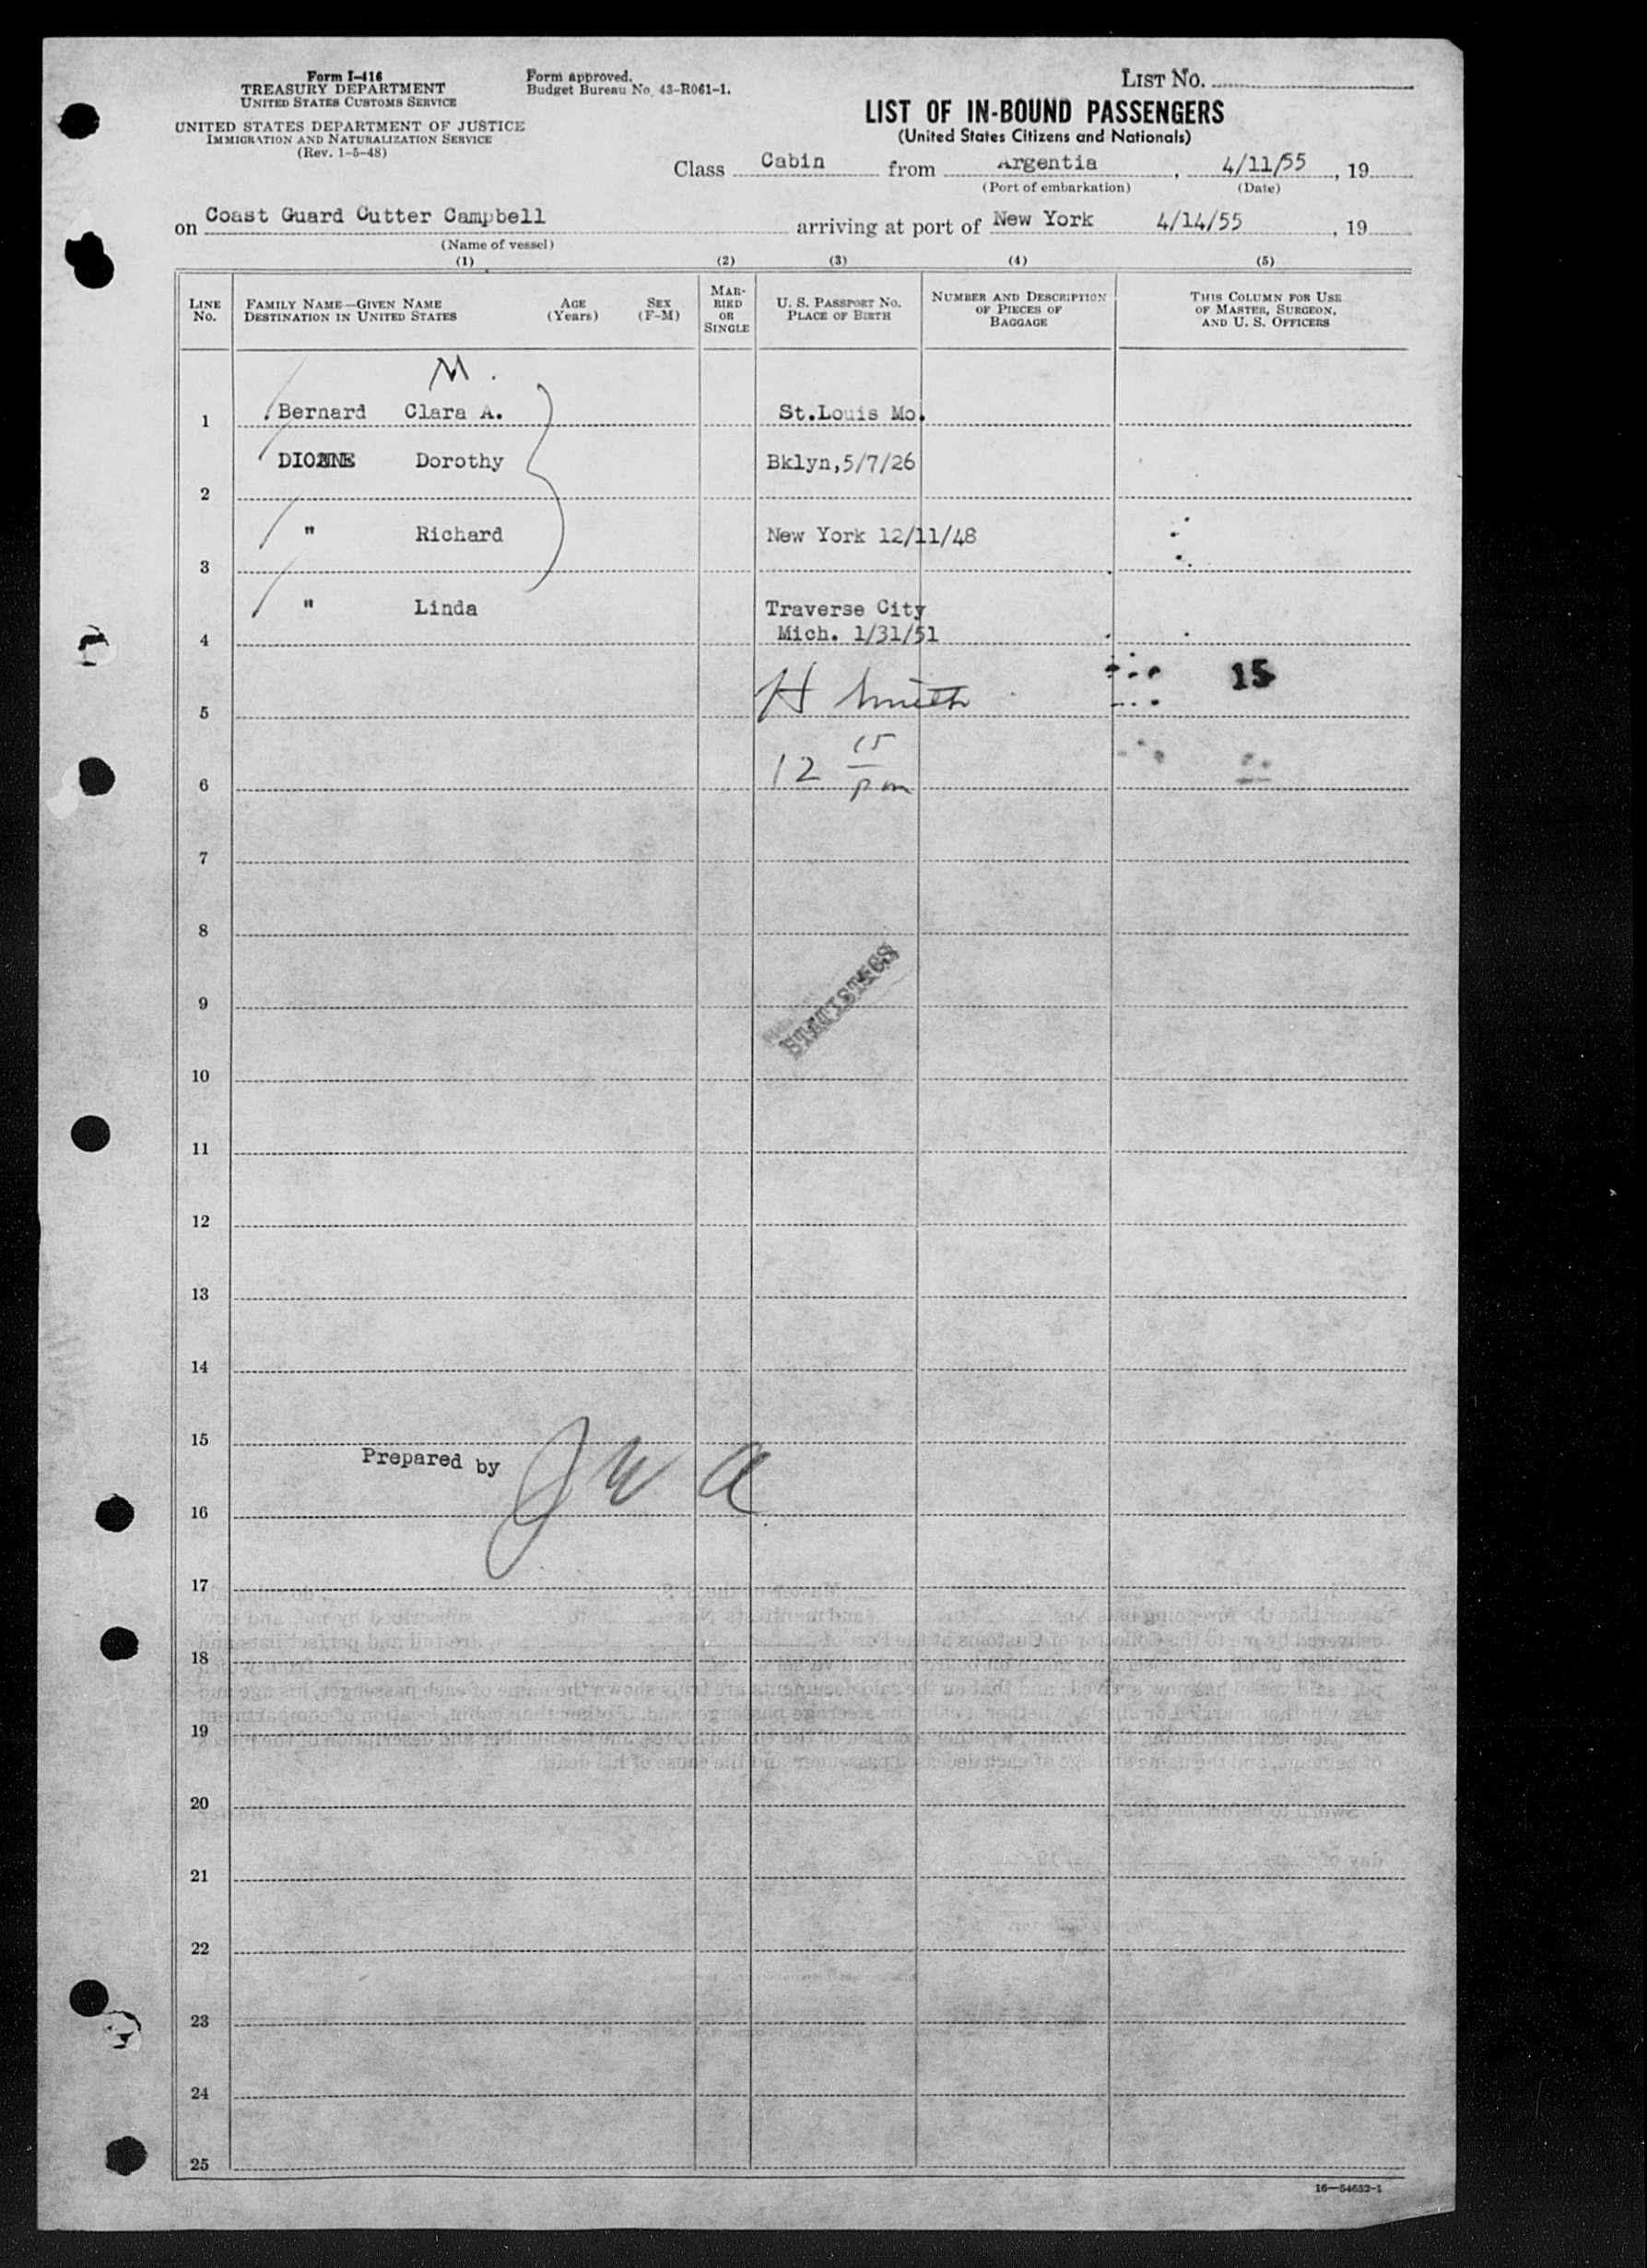 Form I-416
TREASURY DEPARTMENT
UNITED STATES CUSTOMS SERVICE
UNITED STATES DEPARTMENT OF JUSTICE
IMMIGRATION AND NATURALIZATION SERVICE
(Rev. 1-5-48)
Form approved.
Budget Bureau No. 43-R061-1.
LIST NO.
LIST OF IN-BOUND PASSENGERS
(United States Citizens and Nationals)
Class Cabin from Argentia, 4/11/55, 19
(Port of embarkation) (Date)
on Coast Guard Cutter Campbell arriving at port of New York 4/14/55, 19
(Name of vessel)
(1) (2) (3) (4) (5)
LINE NO.
FAMILY NAME—GIVEN NAME
DESTINATION IN UNITED STATES
AGE (Years)
SEX (F-M)
MARRIED OR SINGLE
U. S. PASSPORT NO.
PLACE OF BIRTH
NUMBER AND DESCRIPTION OF PIECES OF BAGGAGE
THIS COLUMN FOR USE OF MASTER, SURGEON, AND U. S. OFFICERS
M.
1 Bernard Clara A. St.Louis Mo.
2 Dorothy Bklyn,5/7/26
3 " Richard New York 12/11/48
4 " Linda Traverse City
Mich. 1/31/51
5 H Smith 15
6 12 15 pm
7
8
STATISTICS
9
10
11
12
13
14
15
Prepared by
16
17
18
19
20
21
22
23
24
25
16—54652-1